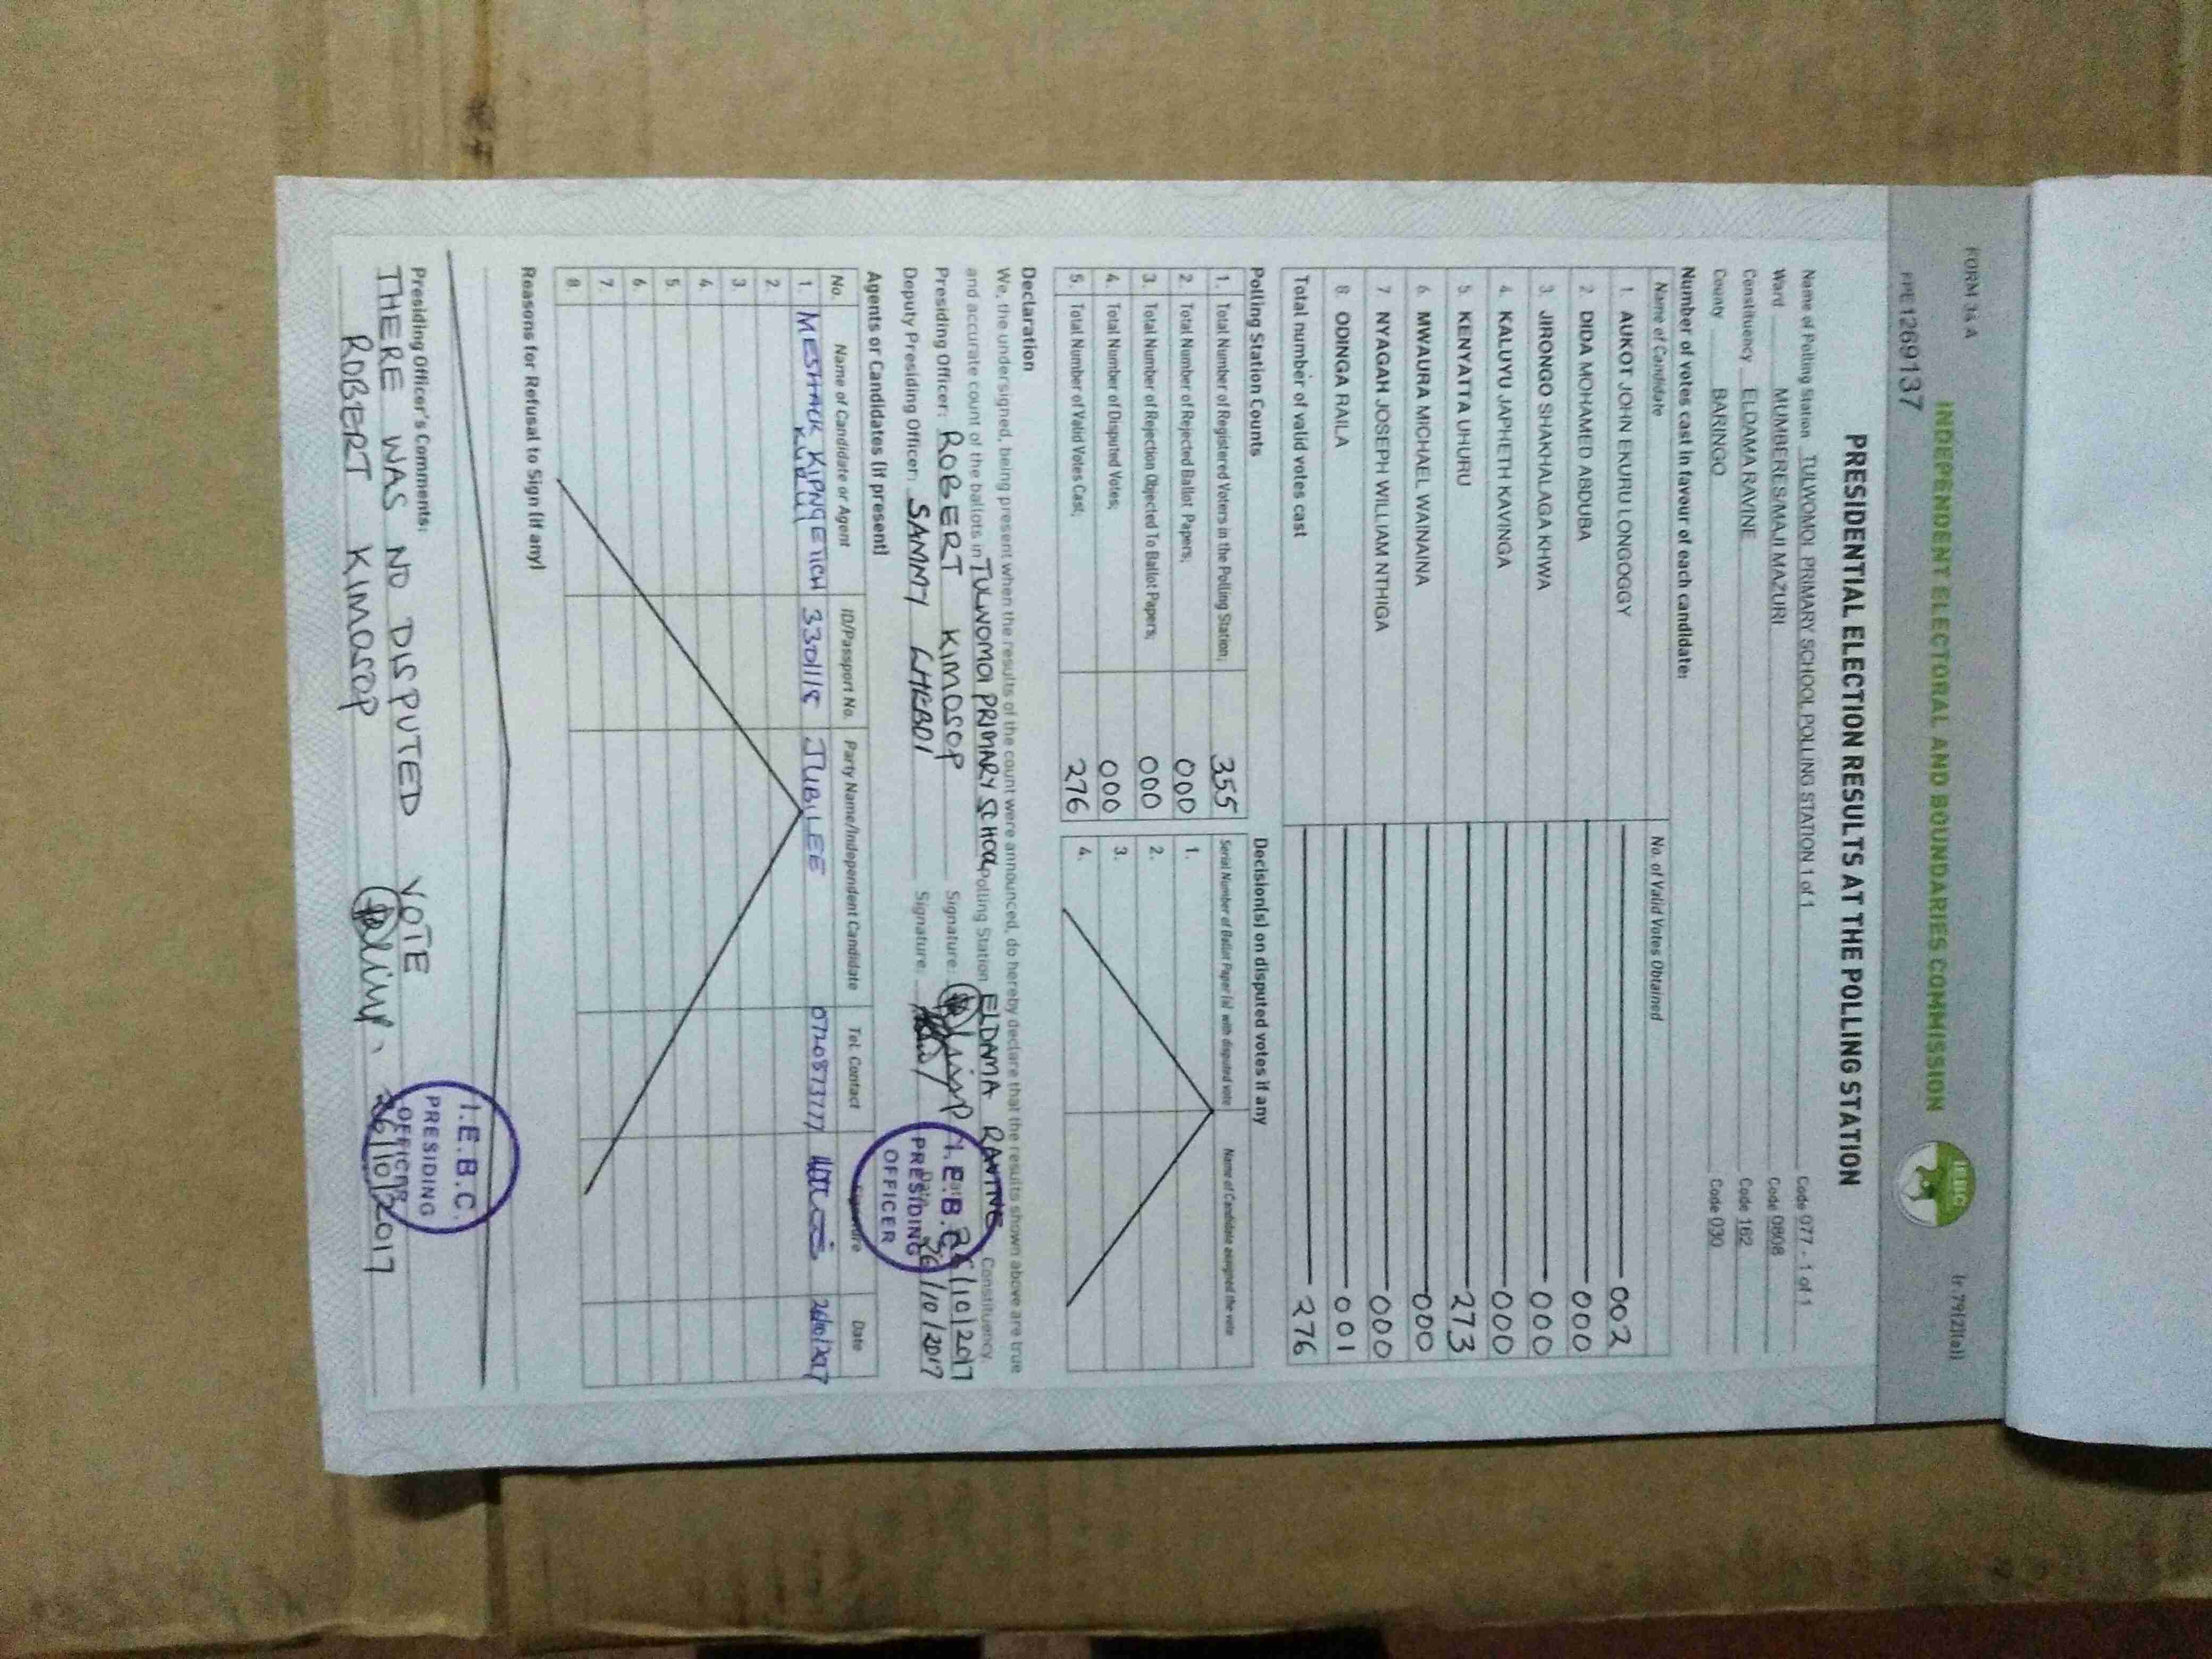 FORM 34 A
INDEPENDENT ELECTORAL AND BOUNDARIES COMMISSION
IEBC
(r 79(2)(a))
PPE1269137
PRESIDENTIAL ELECTION RESULTS AT THE POLLING STATION
Name of Polling Station TULWOMOI PRIMARY SCHOOL POLLING STATION 1 of 1 Code 077 - 1 of 1
Ward MUMBERES/MAJI MAZURI Code 0808
Constituency ELDAMA RAVINE Code 162
County BARINGO Code 030
Number of votes cast in favour of each candidate:
Name of Candidate No. of Valid Votes Obtained
1. AUKOT JOHN EKURU LONGOGGY 002
2. DIDA MOHAMED ABDUBA 000
3. JIRONGO SHAKHALAGA KHWA 000
4. KALUYU JAPHETH KAVINGA 000
5. KENYATTA UHURU 273
6. MWAURA MICHAEL WAINAINA 000
7. NYAGAH JOSEPH WILLIAM NTHIGA 000
8. ODINGA RAILA 001
Total number of valid votes cast 276
Polling Station Counts
1. Total Number of Registered Voters in the Polling Station; 355
2. Total Number of Rejected Ballot Papers; 000
3. Total Number of Rejection Objected To Ballot Papers; 000
4. Total Number of Disputed Votes; 000
5. Total Number of Valid Votes Cast; 276
Decision(s) on disputed votes if any
Serial Number of Ballot Paper (s) with disputed vote Name of Candidate assigned the vote
1.
2.
3.
4.
Declaration
We, the undersigned, being present when the results of the count were announced, do hereby declare that the results shown above are true
and accurate count of the ballots in TULWOMOI PRIMARY SCHOOL Polling Station ELDAMA RAVINE Constituency
Presiding Officer: ROBERT KIMOSOP Signature: 26/10/2017
Deputy Presiding Officer: SAMMY CHEBOI Signature: Date: 26/10/2017
I.E.B.C.
PRESIDING
OFFICER
Agents or Candidates (if present)
No. Name of Candidate or Agent ID/Passport No. Party Name/Independent Candidate Tel. Contact Signature Date
1. MESHACK KIPNGETICH JUBILEE 26/10/2017
2.
3.
4.
5.
6.
7.
8.
Reasons for Refusal to Sign (if any)
Presiding Officer's Comments:
THERE WAS NO DISPUTED VOTE
ROBERT KIMOSOP 26/10/2017
I.E.B.C.
PRESIDING
OFFICER